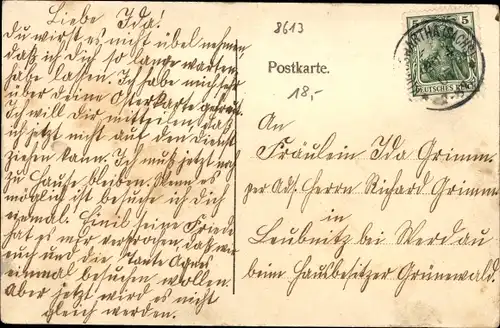 Liebe Ida!
Du wirst es nicht übel nehmen,
daß ich dich so lange warten
habe lassen. Ich habe mich sehr
über deine Osterkarte gefreut.
Ich will dir mitteilen, daß
ich jetzt nicht auf den Dienst
ziehen kann. Ich muß jetzt noch
zu Hause bleiben. Wenn es
möglich ist besuche ich dich
einmal. Emil seine Frieda
hat es mir versprochen, daß wir
mich und die Tante Agnes
einmal besuchen wollen.
Aber jetzt wird es nicht
gleich werden.
8613
Postkarte.
18,-
5
DEUTSCHES REICH
An
Fräulein Ida Grimm
per Adr. Herrn Richard Grimm
in
Leubnitz bei Werdau
beim Hausbesitzer Grünewald.